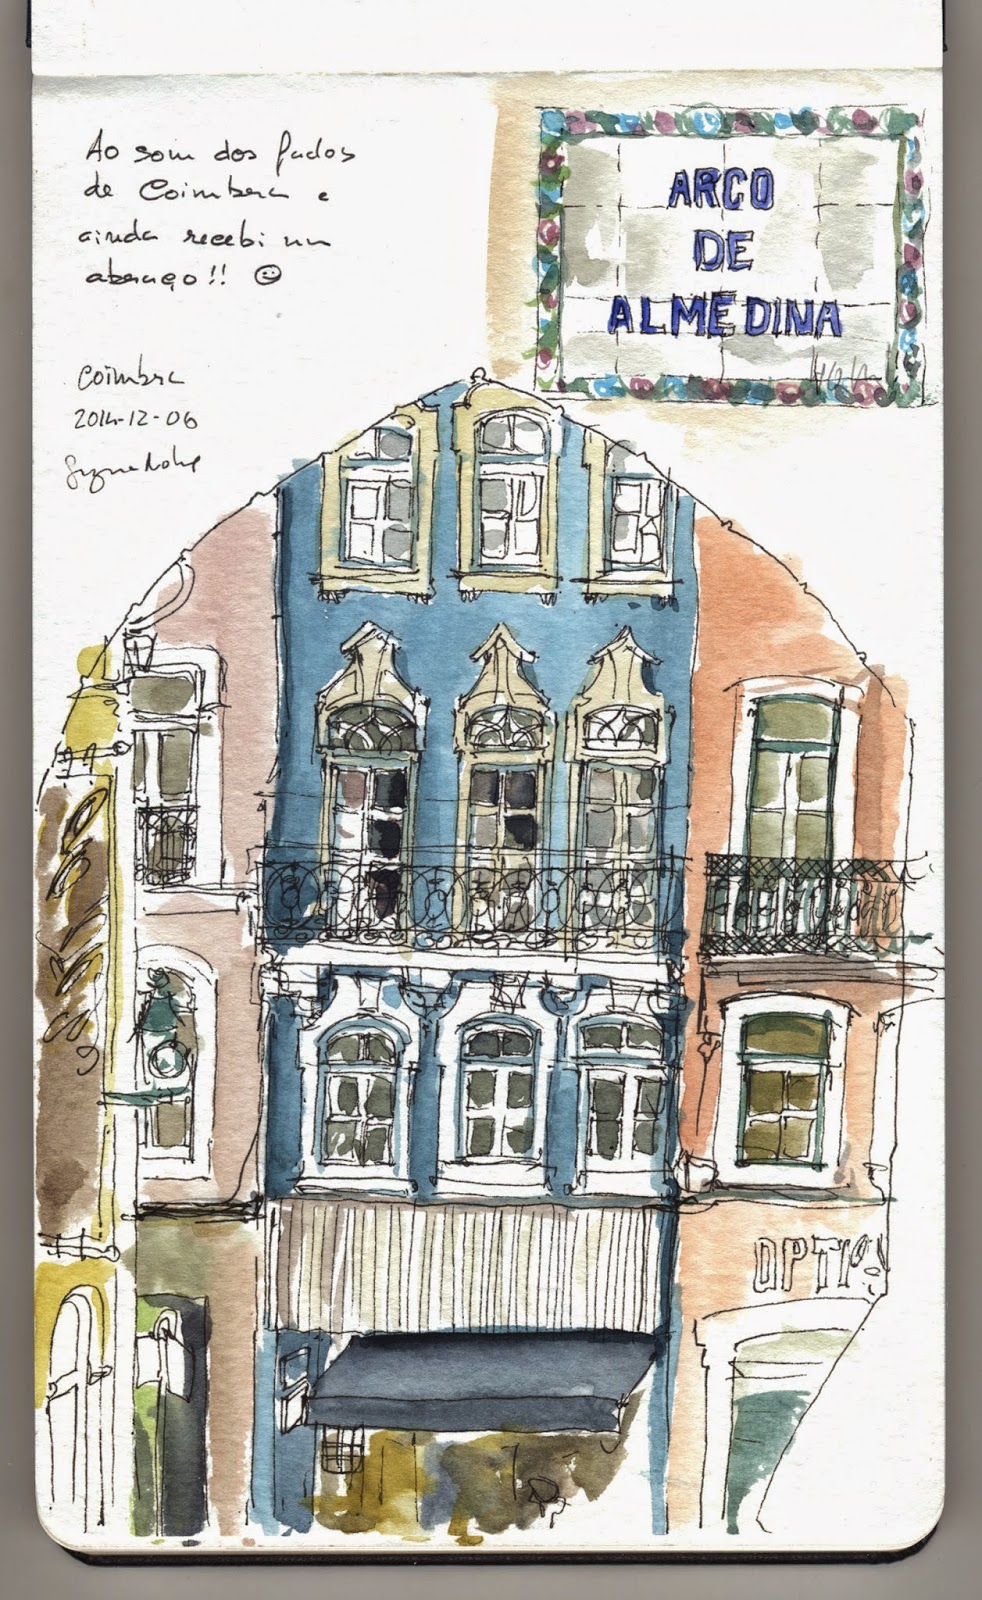 Ao som dos fados
de Coimbra e
ainda recebi um
abraço!! ☺
Coimbra
2014-12-06
ARCO
DE
ALMEDINA
OPTIC